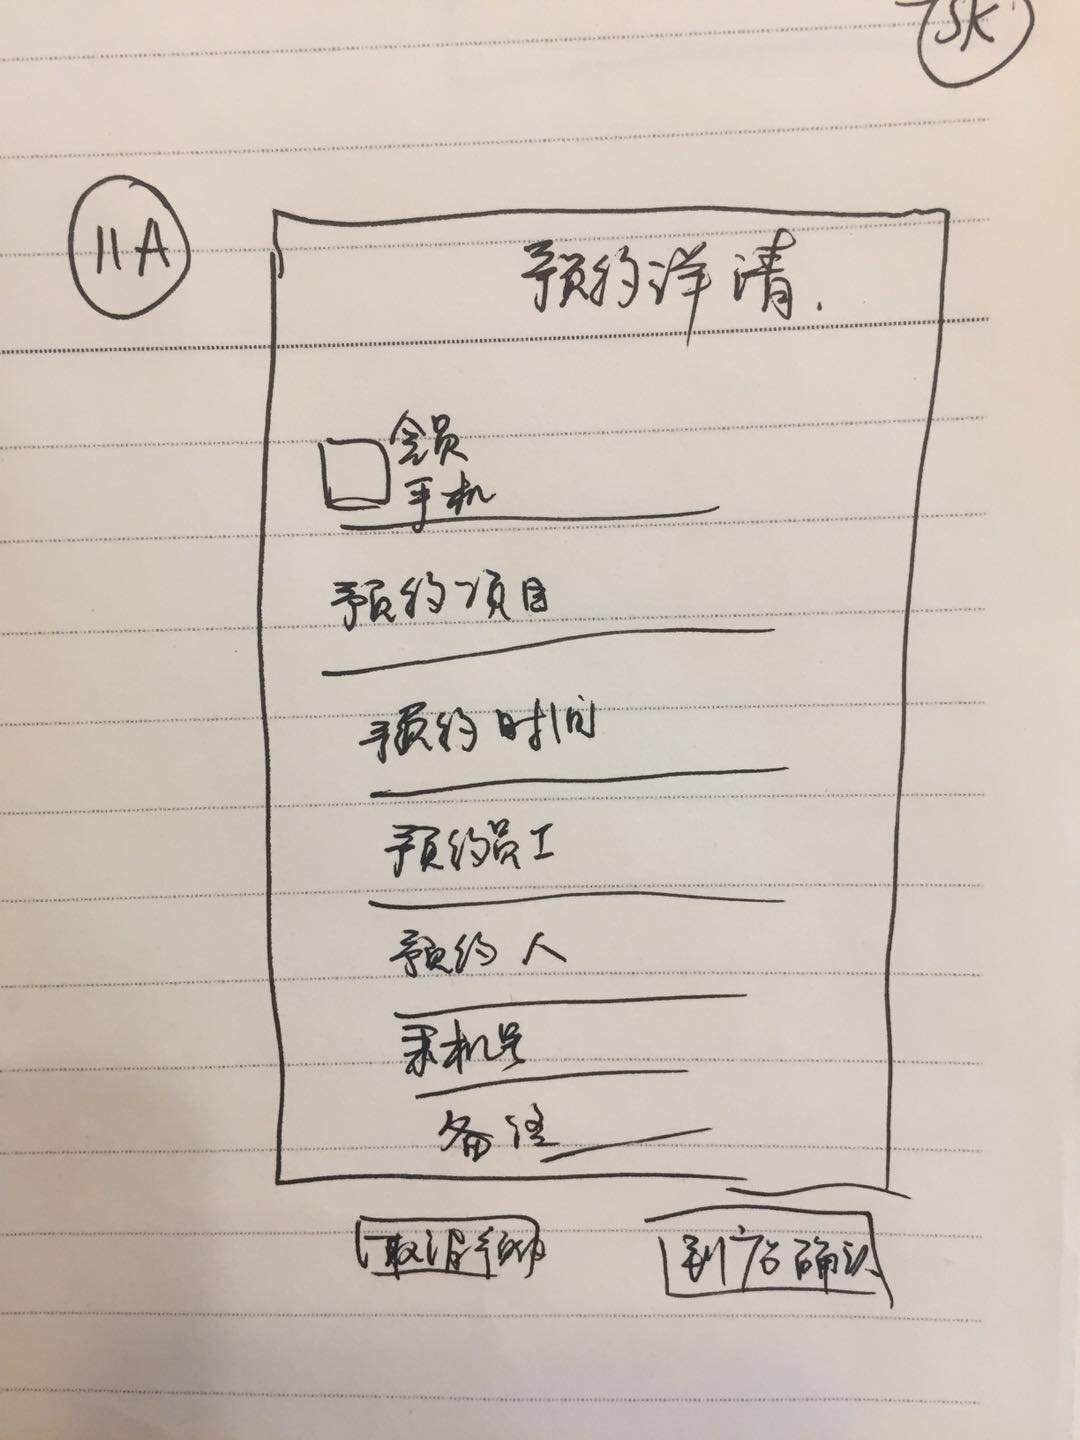 SK
11A
预约详清.
会员
手机
预约项目
预约时间
预约员工
预约人
手机号
备注
取消预约
到店确认